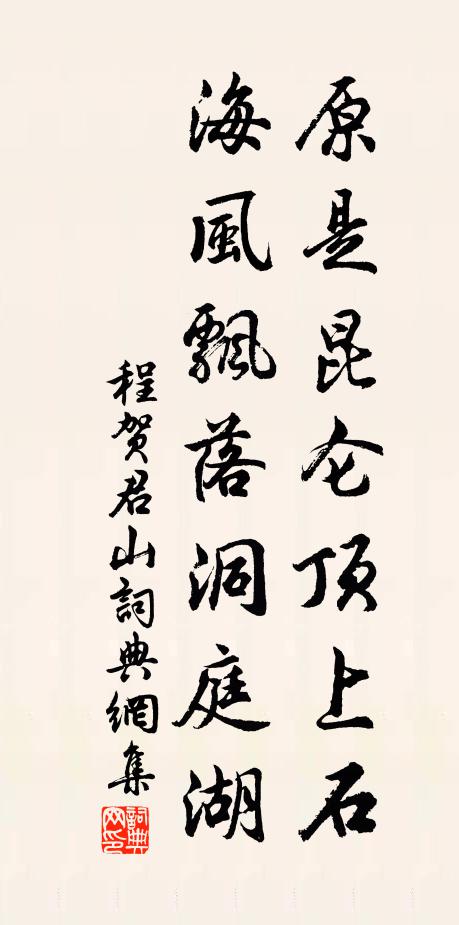 原是昆仑顶上石
海風飄落洞庭湖
程贺君山詞典網集
詞典网印